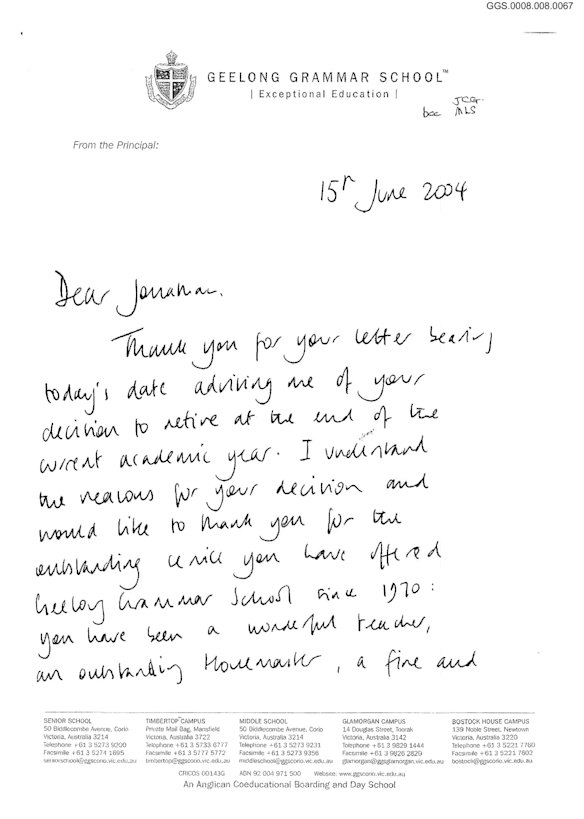 GGS.0008.008.0067
GEELONG GRAMMAR SCHOOL™
| Exceptional Education |
JCG.
bcc MLS
From the Principal:
15th June 2004
Dear Jonathan,
Thank you for your letter bearing
today's date advising me of your
decision to retire at the end of the
current academic year. I understand
the reasons for your decision and
would like to thank you for the
outstanding service you have offered
Geelong Grammar School since 1970:
you have been a wonderful teacher,
an outstanding Housemaster, a fine and
SENIOR SCHOOL
50 Biddlecombe Avenue, Corio
Victoria, Australia 3214
Telephone +61 3 5273 9200
Facsimile +61 3 5274 1695
seniorschool@ggscorio.vic.edu.au
TIMBERTOP™ CAMPUS
Private Mail Bag, Mansfield
Victoria, Australia 3722
Telephone +61 3 5733 6777
Facsimile +61 3 5777 5772
timbertop@ggscorio.vic.edu.au
MIDDLE SCHOOL
50 Biddlecombe Avenue, Corio
Victoria, Australia 3214
Telephone +61 3 5273 9231
Facsimile +61 3 5273 9356
middleschool@ggscorio.vic.edu.au
GLAMORGAN CAMPUS
14 Douglas Street, Toorak
Victoria, Australia 3142
Telephone +61 3 9829 1444
Facsimile +61 3 9826 2829
glamorgan@ggsglamorgan.vic.edu.au
BOSTOCK HOUSE CAMPUS
139 Noble Street, Newtown
Victoria, Australia 3220
Telephone +61 3 5221 7760
Facsimile +61 3 5221 7602
bostock@ggscorio.vic.edu.au
CRICOS 00143G ABN 92 004 971 500 Website: www.ggscorio.vic.edu.au
An Anglican Coeducational Boarding and Day School